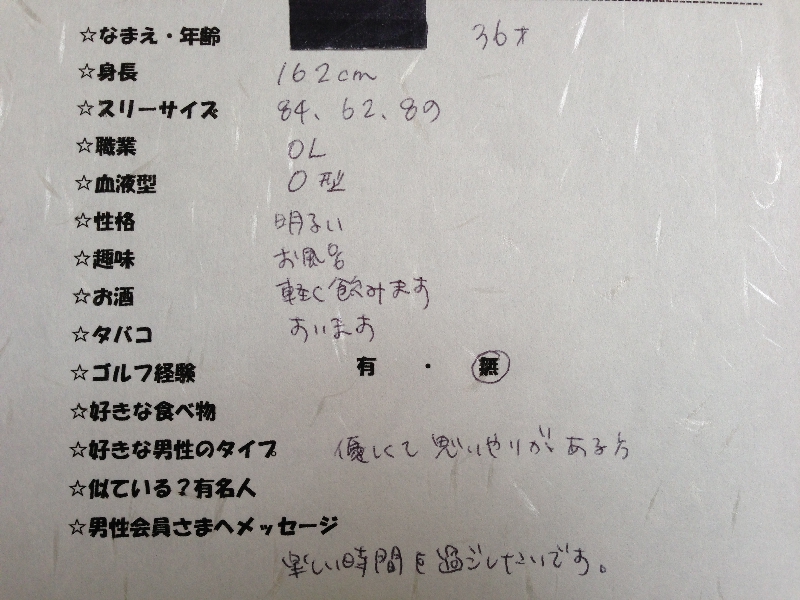 ☆なまえ・年齢 36才
☆身長 162cm
☆スリーサイズ 84、62、89
☆職業 OL
☆血液型 O型
☆性格 明るい
☆趣味 お風呂
☆お酒 軽く飲みます
☆タバコ すいます
☆ゴルフ経験 有・無
☆好きな食べ物
☆好きな男性のタイプ 優しくて思いやりがある方
☆似ている?有名人
☆男性会員さまへメッセージ
楽しい時間を過ごしたいです。